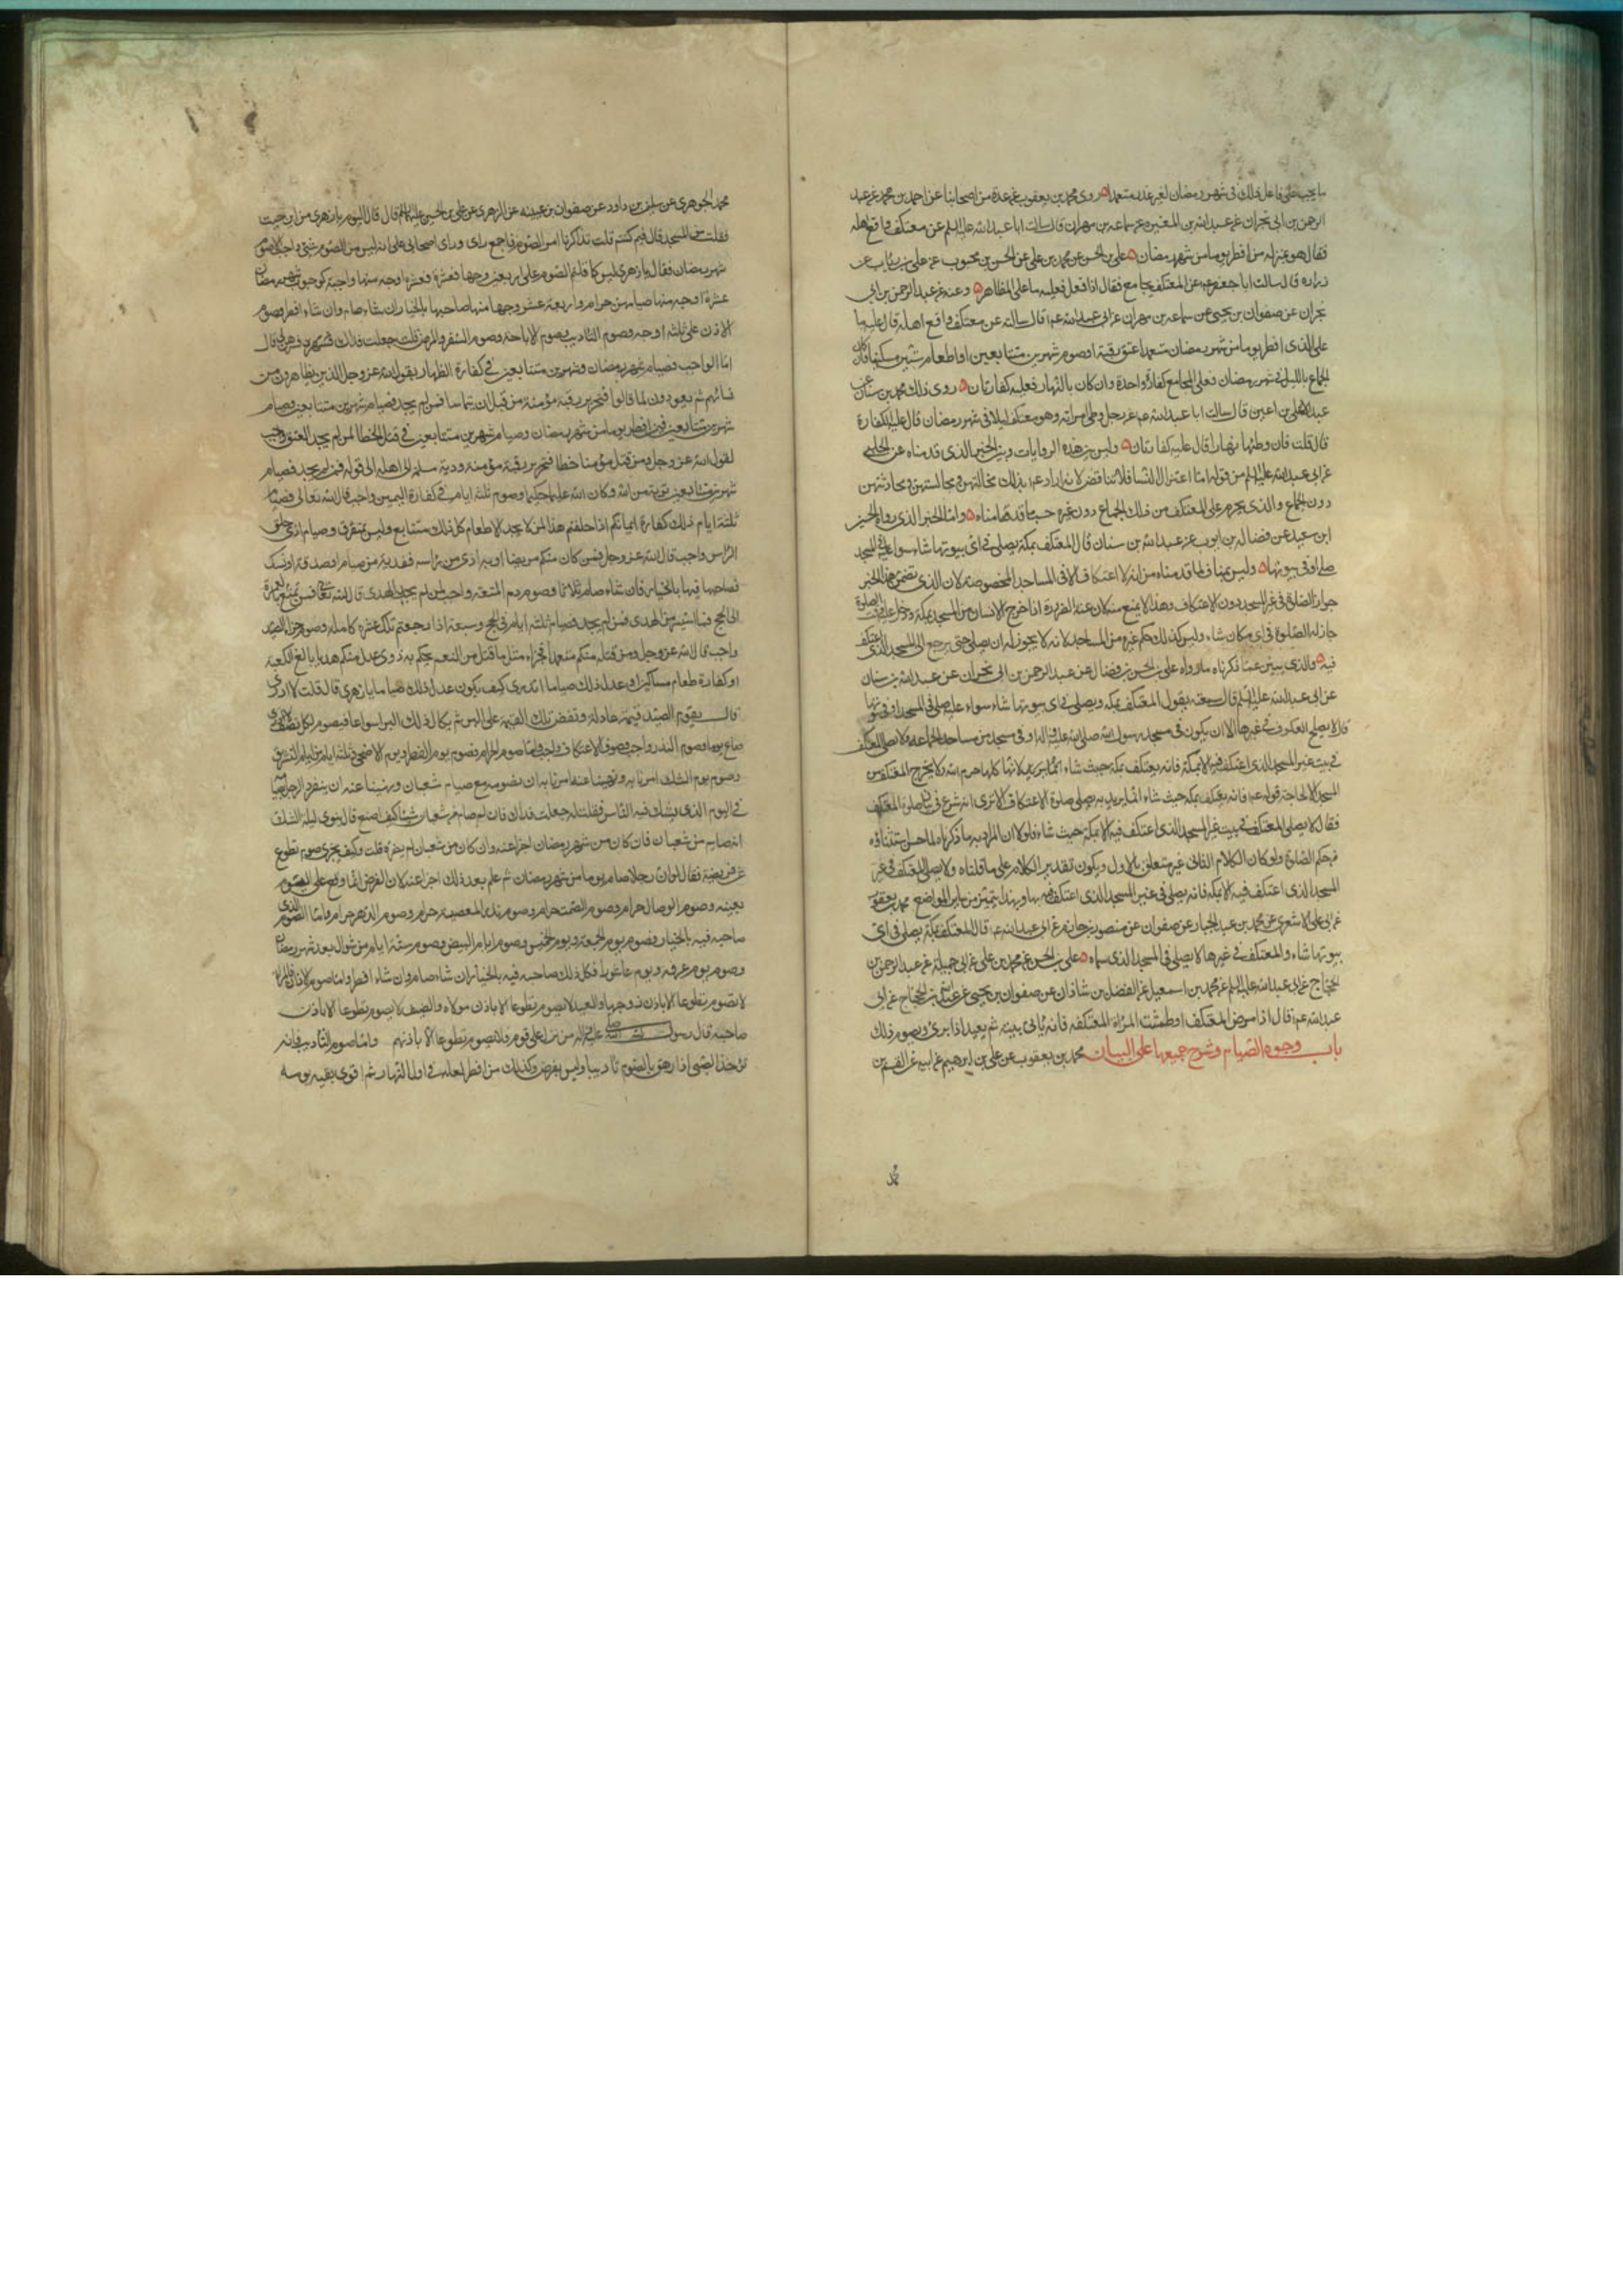 ما يجب على فاعل ذلك فى شهر رمضان لغير عذر متعمدا روى محمد بن يعقوب عن عدة من اصحابنا عن احمد بن محمد عن عبد
الرحمن بن ابى نجران عن عبد الله بن المغيره عن سماعه بن مهران قال سالت ابا عبد الله عليه السلم عن معتكف واقع اهله
فقال هو بمنزله من افطر يوما من شهر رمضان على بن الحسن عن محمد بن على عن الحسن بن محبوب عن على بن رئاب عن
زراره قال سالت ابا جعفر عن المعتكف يجامع فقال اذا فعل فعليه ما على المظاهر وعنه عن عبد الرحمن بن ابى
نجران عن صفوان بن يحيى عن سماعه بن مهران عن ابى عبد الله ع قال سالته عن معتكف واقع اهله قال عليه ما
على الذى افطر يوما من شهر رمضان متعمدا عتق رقبة او صوم شهرين متتابعين او اطعام ستين مسكينا فان كان
الجماع بالليل فى شهر رمضان فعلى المجامع كفارة واحدة وان كان بالنهار فعليه كفارتان روى ذلك محمد بن سنان عن
عبد الاعلى بن اعين قال سالت ابا عبد الله ع عن رجل وطى امراته وهو معتكف ليلا فى شهر رمضان قال عليه الكفارة
قال قلت فان وطئها نهارا قال عليه كفارتان وليس بين هذه الروايات وبين الخبر الذى قدمناه عن الحلبى
عن ابى عبد الله عليه السلم من قوله اما اعتزال النسا فلا تناقض لانه اراد ع بذلك مخالتهن ومجالستهن ومحادثتهن
دون الجماع والذى يحرم على المعتكف من ذلك الجماع دون غيره حسب ما قدمناه واما الخبر الذى رواه الحسين
ابن سعيد عن فضاله بن ايوب عن عبد الله بن سنان قال المعتكف بمكة يصلى فى اى بيوتها شاء سواء عليه فى المسجد
صلى او فى بيوتها وليس بمناف لما قدمناه من انه لا اعتكاف الا فى المساجد المخصوصة لان الذى تضمن هذا الخبر
جواز الصلوة فى غير المسجد دون الاعتكاف وهذا لا يمتنع منه لان عند الضرورة اذا خرج الانسان من المسجد بمكة ودخل عليه وقت الصلوة
جاز له الصلوة فى اى مكان شاء وليس كذلك حكم غيره من المساجد لانه لا يجوز له ان يصلى حتى يرجع الى المسجد الذى اعتكف
فيه والذى يبين عما ذكرناه ما رواه على بن الحسن بن فضال عن عبد الرحمن بن ابى نجران عن عبد الله بن سنان
عن ابى عبد الله عليه السلم قال سمعته يقول المعتكف بمكة يصلى فى اى بيوتها شاء سواء عليه صلى فى المسجد او فى بيوتها
قال لا يصلح العكوف فى غيرها الا ان يكون فى مسجد رسول الله صلى الله عليه واله او فى مسجد من مساجد الجماعه ولا يصلى المعتكف
فى بيت غير المسجد الذى اعتكف فيه الا بمكة فانه يعتكف بمكة حيث شاء لانها كلها حرم الله ولا يخرج المعتكف من
المسجد الا لحاجة قوله ع فانه يعتكف بمكة حيث شاء انما يريد به يصلى صلوة الاعتكاف الا ترى انه شرع فى بيان صلوة المعتكف
فقال لا يصلى المعتكف فى بيت غير المسجد الذى اعتكف فيه الا بمكة حيث شاء فلولا ان المراد به ما ذكرناه لما حسن استثناؤه
من حكم الصلوة ولو كان الكلام الثانى غير متعلق بالاول ويكون تقدير الكلام على ما قلناه ولا يصلى المعتكف فى غير
المسجد الذى اعتكف فيه الا بمكه فانه يصلى فى غير المسجد الذى اعتكف فيه بها وبهذا يتميز من ساير المواضع محمد بن يعقوب
عن ابى على الاشعرى عن محمد بن عبد الجبار عن صفوان عن منصور بن حازم عن ابى عبد الله ع قال المعتكف بمكة يصلى فى اى
بيوتها شاء والمعتكف فى غيرها لا يصلى الا فى المسجد الذى سماه على بن الحسن عن محمد بن على عن ابى جميلة عن عبد الرحمن بن
الحجاج عن ابى عبد الله عليه السلم عن محمد بن اسمعيل عن الفضل بن شاذان عن صفوان بن يحيى عن عبد الرحمن بن الحجاج عن ابى
عبد الله ع قال اذا مرض المعتكف او طمثت المراة المعتكفه فانه ياتى بيته ثم يعيد اذا برى ويصوم ذلك
باب وجوه الصيام وشرح جميعها على البيان محمد بن يعقوب عن على بن ابرهيم عن ابيه عن القسم بن
محمد الجوهرى عن سليمن بن داود عن سفيان بن عيينه عن الزهرى عن على بن الحسين عليهما السلم قال قال اليوم يا زهرى من اين جئت
فقلت من المسجد قال فيم كنتم قلت تذاكرنا امر الصوم فاجمع راى وراى اصحابى على انه ليس من الصوم شئ واجب الا صوم
شهر رمضان فقال يا زهرى ليس كما قلتم الصوم على اربعين وجها فعشرة اوجه منها واجبة كوجوب شهر رمضان
عشرة اوجه منها صيامهن حرام واربعة عشر وجها منها صاحبها بالخيار ان شاء صام وان شاء افطر وصوم
الاذن على ثلثه اوجه وصوم التاديب وصوم الاباحة وصوم السفر والمرض قلت جعلت فداك فسرهن لى قال
اما الواجب فصيام شهر رمضان وشهرين متتابعين فى كفارة الظهار يقول الله عز وجل الذين يظاهرون من
نسائهم ثم يعودون لما قالوا فتحرير رقبة مؤمنه من قبل ان يتماسا فمن لم يجد فصيام شهرين متتابعين وصيام
شهرين متتابعين فيمن افطر يوما من شهر رمضان وصيام شهرين متتابعين فى قتل الخطا لمن لم يجد العتق واجب
لقول الله عز وجل ومن قتل مؤمنا خطا فتحرير رقبة مؤمنه ودية مسلمة الى اهله الى قوله فمن لم يجد فصيام
شهرين متتابعين توبة من الله وكان الله عليما حكيما وصوم ثلثة ايام فى كفارة اليمين واجب قال الله تعالى فصيام
ثلثة ايام ذلك كفارة ايمانكم اذا حلفتم هذا لمن لا يجد الاطعام كل ذلك متتابع وليس بمتفرق وصيام اذى حلق
الراس واجب قال الله عز وجل فمن كان منكم مريضا او به اذى من راسه ففدية من صيام او صدقة او نسك
فصاحبها فيها بالخيار فان شاء صام ثلاثا وصوم دم المتعة واجب لمن لم يجد الهدى قال الله تعالى فمن تمتع بالعمرة
الى الحج فما استيسر من الهدى فمن لم يجد فصيام ثلثة ايام فى الحج وسبعة اذا رجعتم تلك عشرة كاملة وصوم جزاء الصيد
واجب قال الله عز وجل ومن قتله منكم متعمدا فجزاء مثل ما قتل من النعم يحكم به ذوى عدل منكم هديا بالغ الكعبة
او كفارة طعام مساكين او عدل ذلك صياما اتدرى كيف يكون عدل ذلك صياما يا زهرى قال قلت لا ادرى
قال يقوم الصيد قيمة عادلة وتفض تلك القيمة على البر ثم يكال ذلك البر اصواعا فيصوم لكل نصف
صاع يوما وصوم النذر واجب وصوم الاعتكاف واجب واما صوم الحرام فصوم يوم الفطر ويوم الاضحى وثلثة ايام من ايام التشريق
وصوم يوم الشك امرنا به ونهينا عنه امرنا به ان نصومه مع صيام شعبان ونهينا عنه ان ينفرد الرجل بصيامه
فى اليوم الذى يشك فيه الناس فقلت له جعلت فداك فان لم يصم من شعبان شيئا كيف يصنع قال ينوى ليلة الشك
انه صايم من شعبان فان كان من شهر رمضان اجزا عنه وان كان من شعبان لم يضره قلت وكيف يجزى صوم تطوع
عن فريضة فقال لو ان رجلا صام يوما من شهر رمضان ثم علم بعد ذلك اجزا عنه لان الفرض انما وقع على اليوم
بعينه وصوم الوصال حرام وصوم الصمت حرام وصوم نذر المعصيه حرام وصوم الدهر حرام واما الصوم الذى
صاحبه فيه بالخيار فصوم يوم الجمعة ويوم الخميس وصوم ايام البيض وصوم ستة ايام من شوال بعد شهر رمضان
وصوم يوم عرفه ويوم عاشورا فكل ذلك صاحبه فيه بالخيار ان شاء صام وان شاء افطر واما صوم الاذن فالمراة
لا تصوم تطوعا الا باذن زوجها والعبد لا يصوم تطوعا الا باذن مولاه والضيف لا يصوم تطوعا الا باذن
صاحبه قال رسول الله صلى الله عليه واله من نزل على قوم فلا يصوم تطوعا الا باذنهم واما صوم التاديب فانه
يؤخذ الصبى اذا راهق بالصوم تاديبا وليس بفرض وكذلك من افطر لعلة فى اول النهار ثم قوى بقية يومه